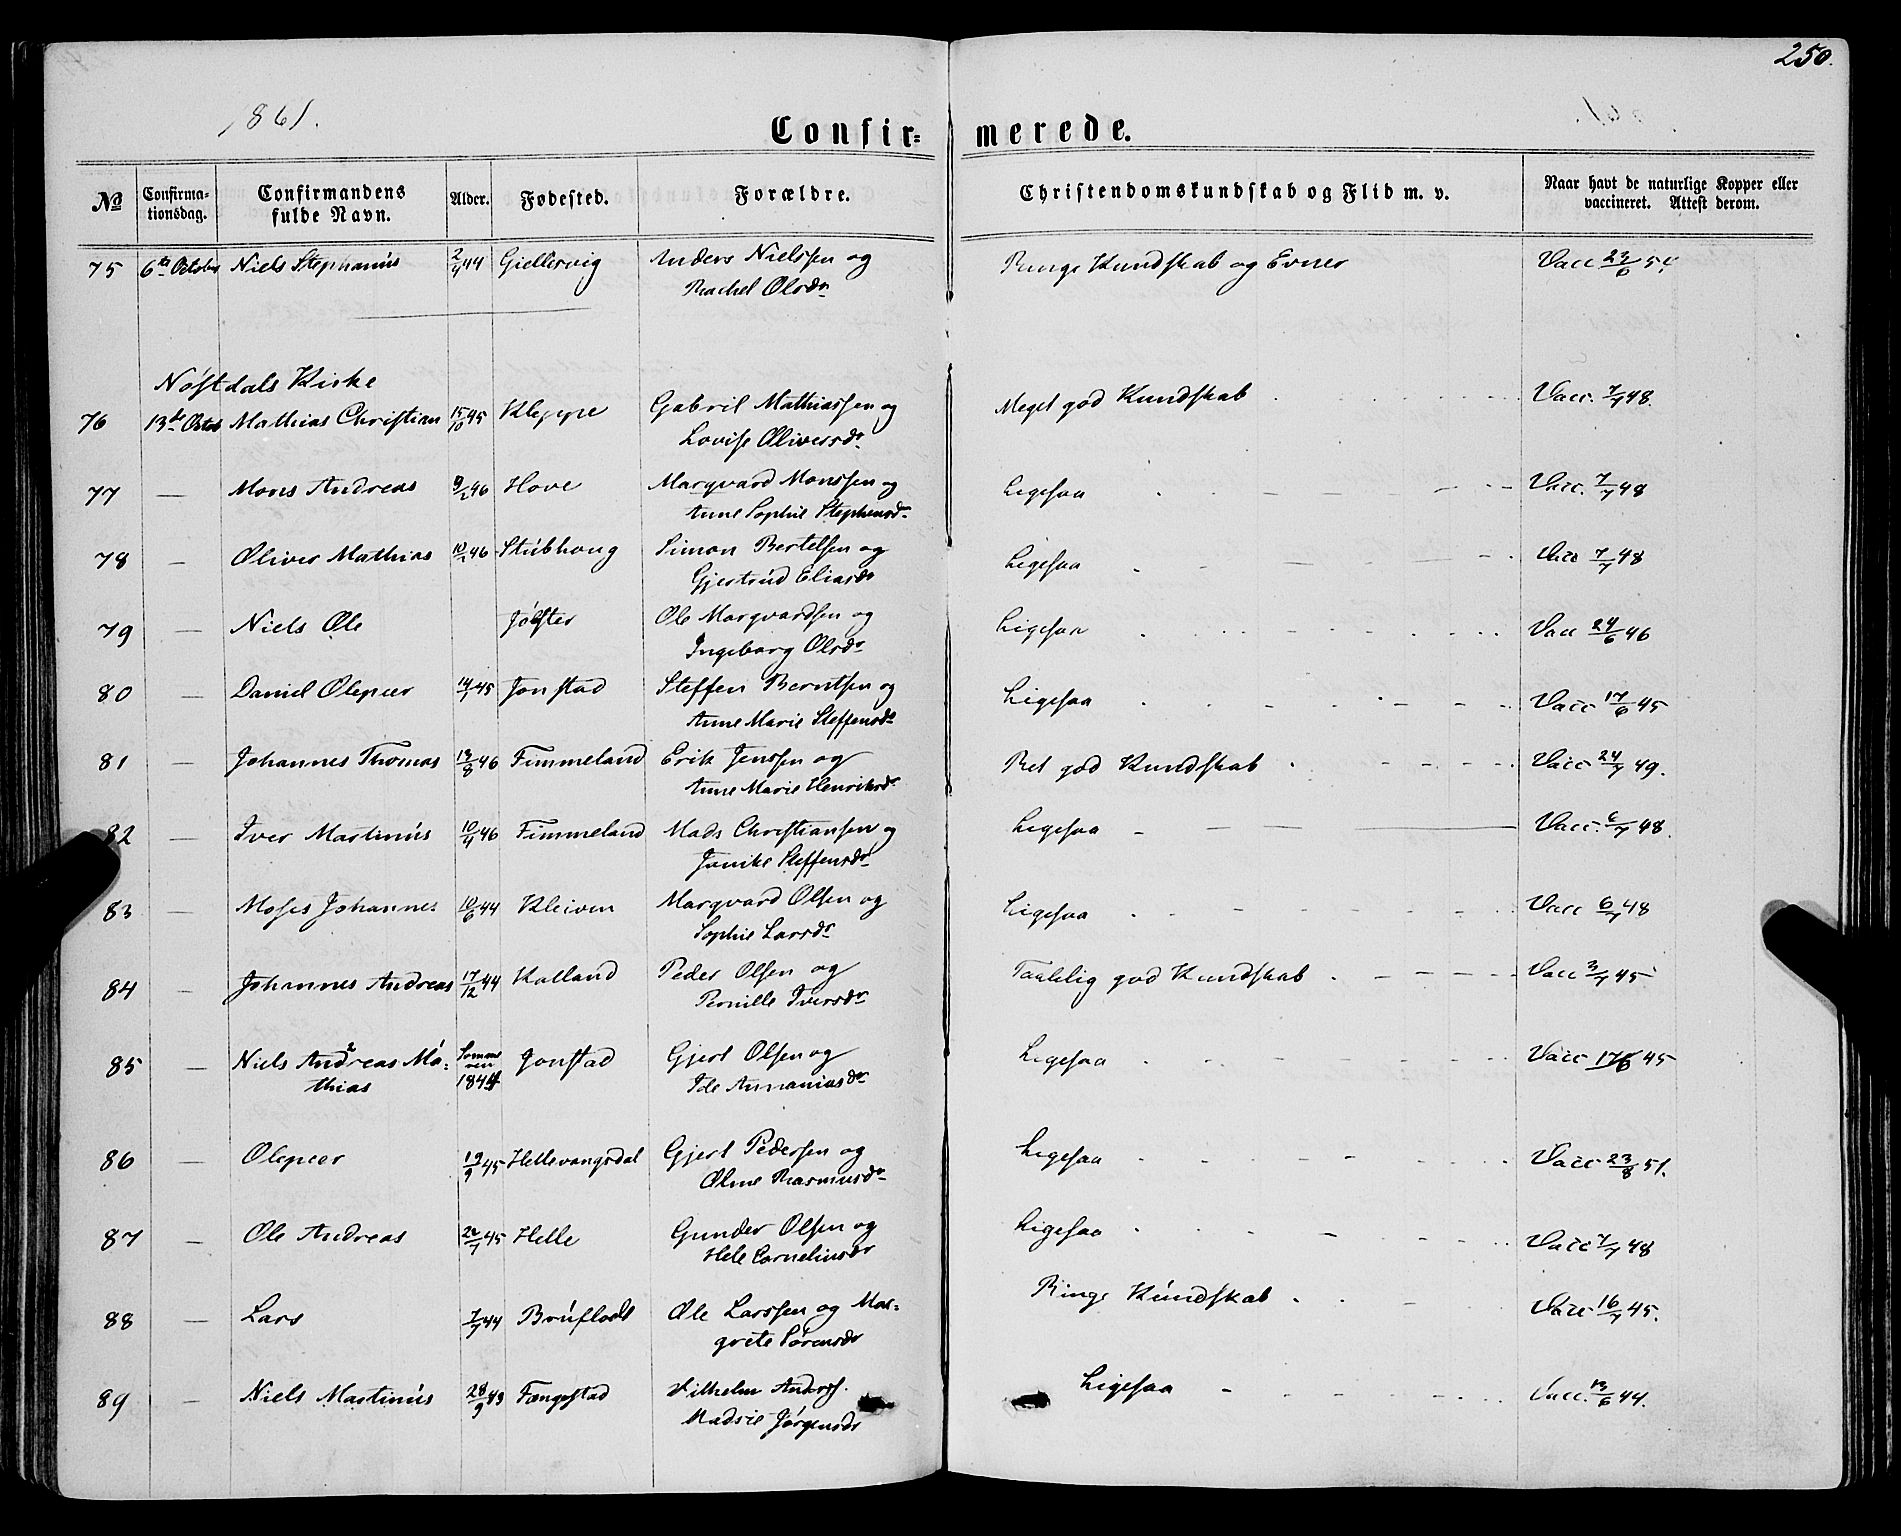 250.
1861.
Confir- merede.
No Confirma-tionsdag. Confirmandens fulde Navn. Alder. Fødested. Forældre. Christendomskundskab og Flid m. v. Naar havt de naturlige Kopper eller vaccineret. Attest derom.
75 6te October Niels Stephanus 2/4 44 Gjellervig Anders Nielssen og Ringe Kundskab og Evner Vacc 23/6 54
Rachel Olsdr
Nøstdals Kirke
76 13de Octob Mathias Christian 15/10 45 Kleppe Gabril Mathiassen og Meget god Kundskab Vacc. 7/7 48.
Lovise Oliversdr
77 — Mons Andreas 9/2 46 Hove Marqvard Monssen og Ligesaa Vacc. 7/7 48
Anne Sophie Stephensdr
78 — Oliver Mathias 10/2 46 Stubhoug Simon Bertelsen og Ligesaa Vacc 7/7 48
Gjertrud Eliasdr
79 — Niels Ole Jølster Ole Marqvardsen og Ligesaa Vacc 24/6 46
Ingeborg Olsdr
80 — Daniel Olepeer 14/1 45 Jonstad Steffen Berntsen og Ligesaa Vacc 17/6 45
Anne Marie Steffensdr
81 — Johannes Thomas 13/8 46 Fimmeland Erik Jenssen og Ret god Kundskab Vacc 24/7 49.
Anne Marie Henriksdr
82 — Iver Martinus 10/4 46 Fimmeland Mads Christiansen og Ligesaa Vacc. 6/7 48.
Janike Steffensdr
83 — Moses Johannes 10/6 44 Kleiven Marqvard Olsen og Ligesaa Vacc 6/7 48
Sophie Larsdr
84 — Johannes Andreas 17/12 44 Kalland Peder Olsen og Taalelig god Kundskab Vacc 3/7 45
Pernille Iversdr
85 — Niels Andreas Ma- Sommeren 1844 Jonstad Gjert Olsen og Ligesaa Vacc 17/6 45
thias Ide Annaniasdr
86 — Olepeer 19/9 45 Hellevangsdal Gjert Pedersen og Ligesaa Vacc 23/8 51.
Oline Rasmusdr
87 — Ole Andreas 20/7 45 Helle Gunder Olsen og Ligesaa Vacc 7/7 48
Hele Corneliusdr
88 — Lars 7/7 44 Bruflodt Ole Larssen og Mar- Ringe Kundskab Vacc 16/7 45.
grete Sørensdr
89 — Niels Martinus 28/9 43 Fængestad Vilhelm Andrss. Ligesaa Vacc. 13/6 44.
Madsie Jørgensdr